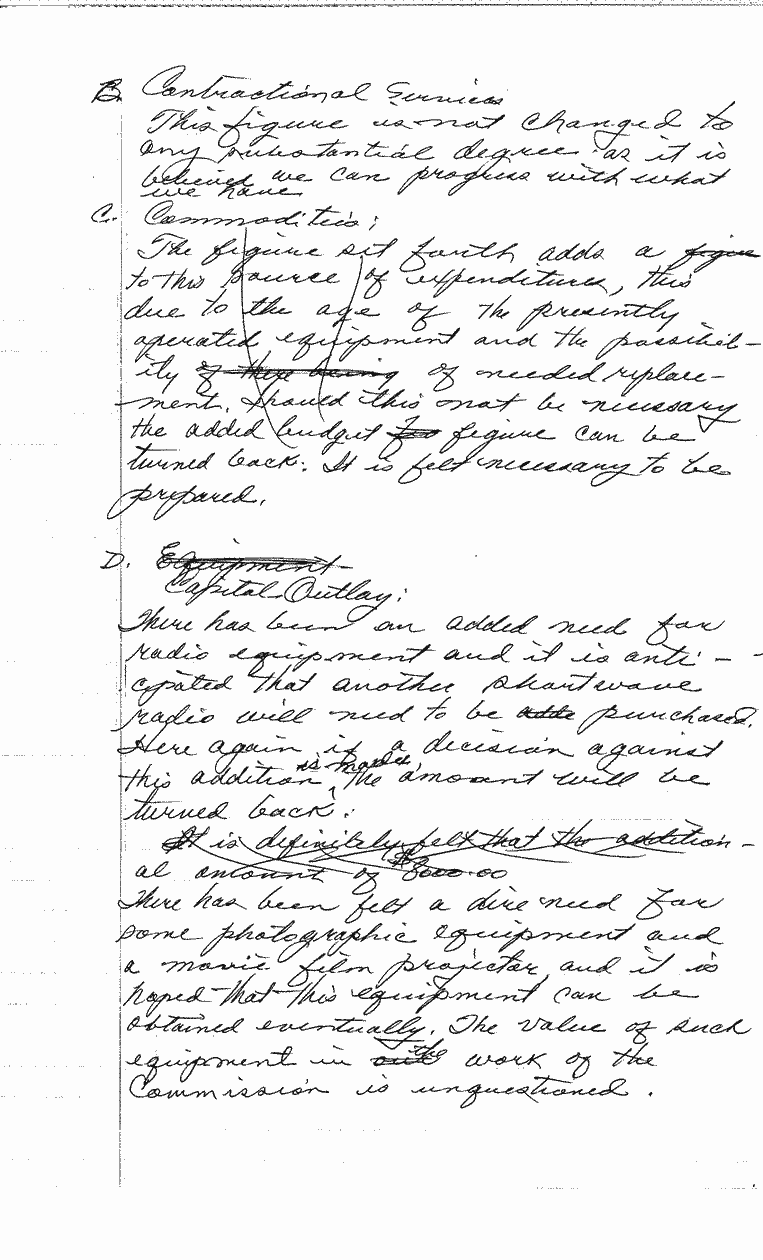 B. Contractional Services
This figure is not changed to
any substantial degree as it is
believed we can progress with what
we have
C. Commodities:
The figure sit fourth adds a figure
to this source of expenditures, this
due to the age of the presently
operated equipment and the possibil-
ity of there being of needed replace-
ment. Should this not be necessary
the added budget for figure can be
turned back. It is felt necessary to be
prepared.
D. Equipment
Capital Outlay:
There has been an added need for
radio equipment and it is anti-
cipated that another shortwave
radio will need to be adde purchased.
Here again if a decision against
this addition is made, the amount will be
turned back.
It is definitely felt that the addition-
al amount of $8000.00
There has been felt a dire need for
some photographic equipment and
a movie film projector and it is
hoped that this equipment can be
obtained eventually. The value of such
equipment in our the work of the
Commission is unquestioned.